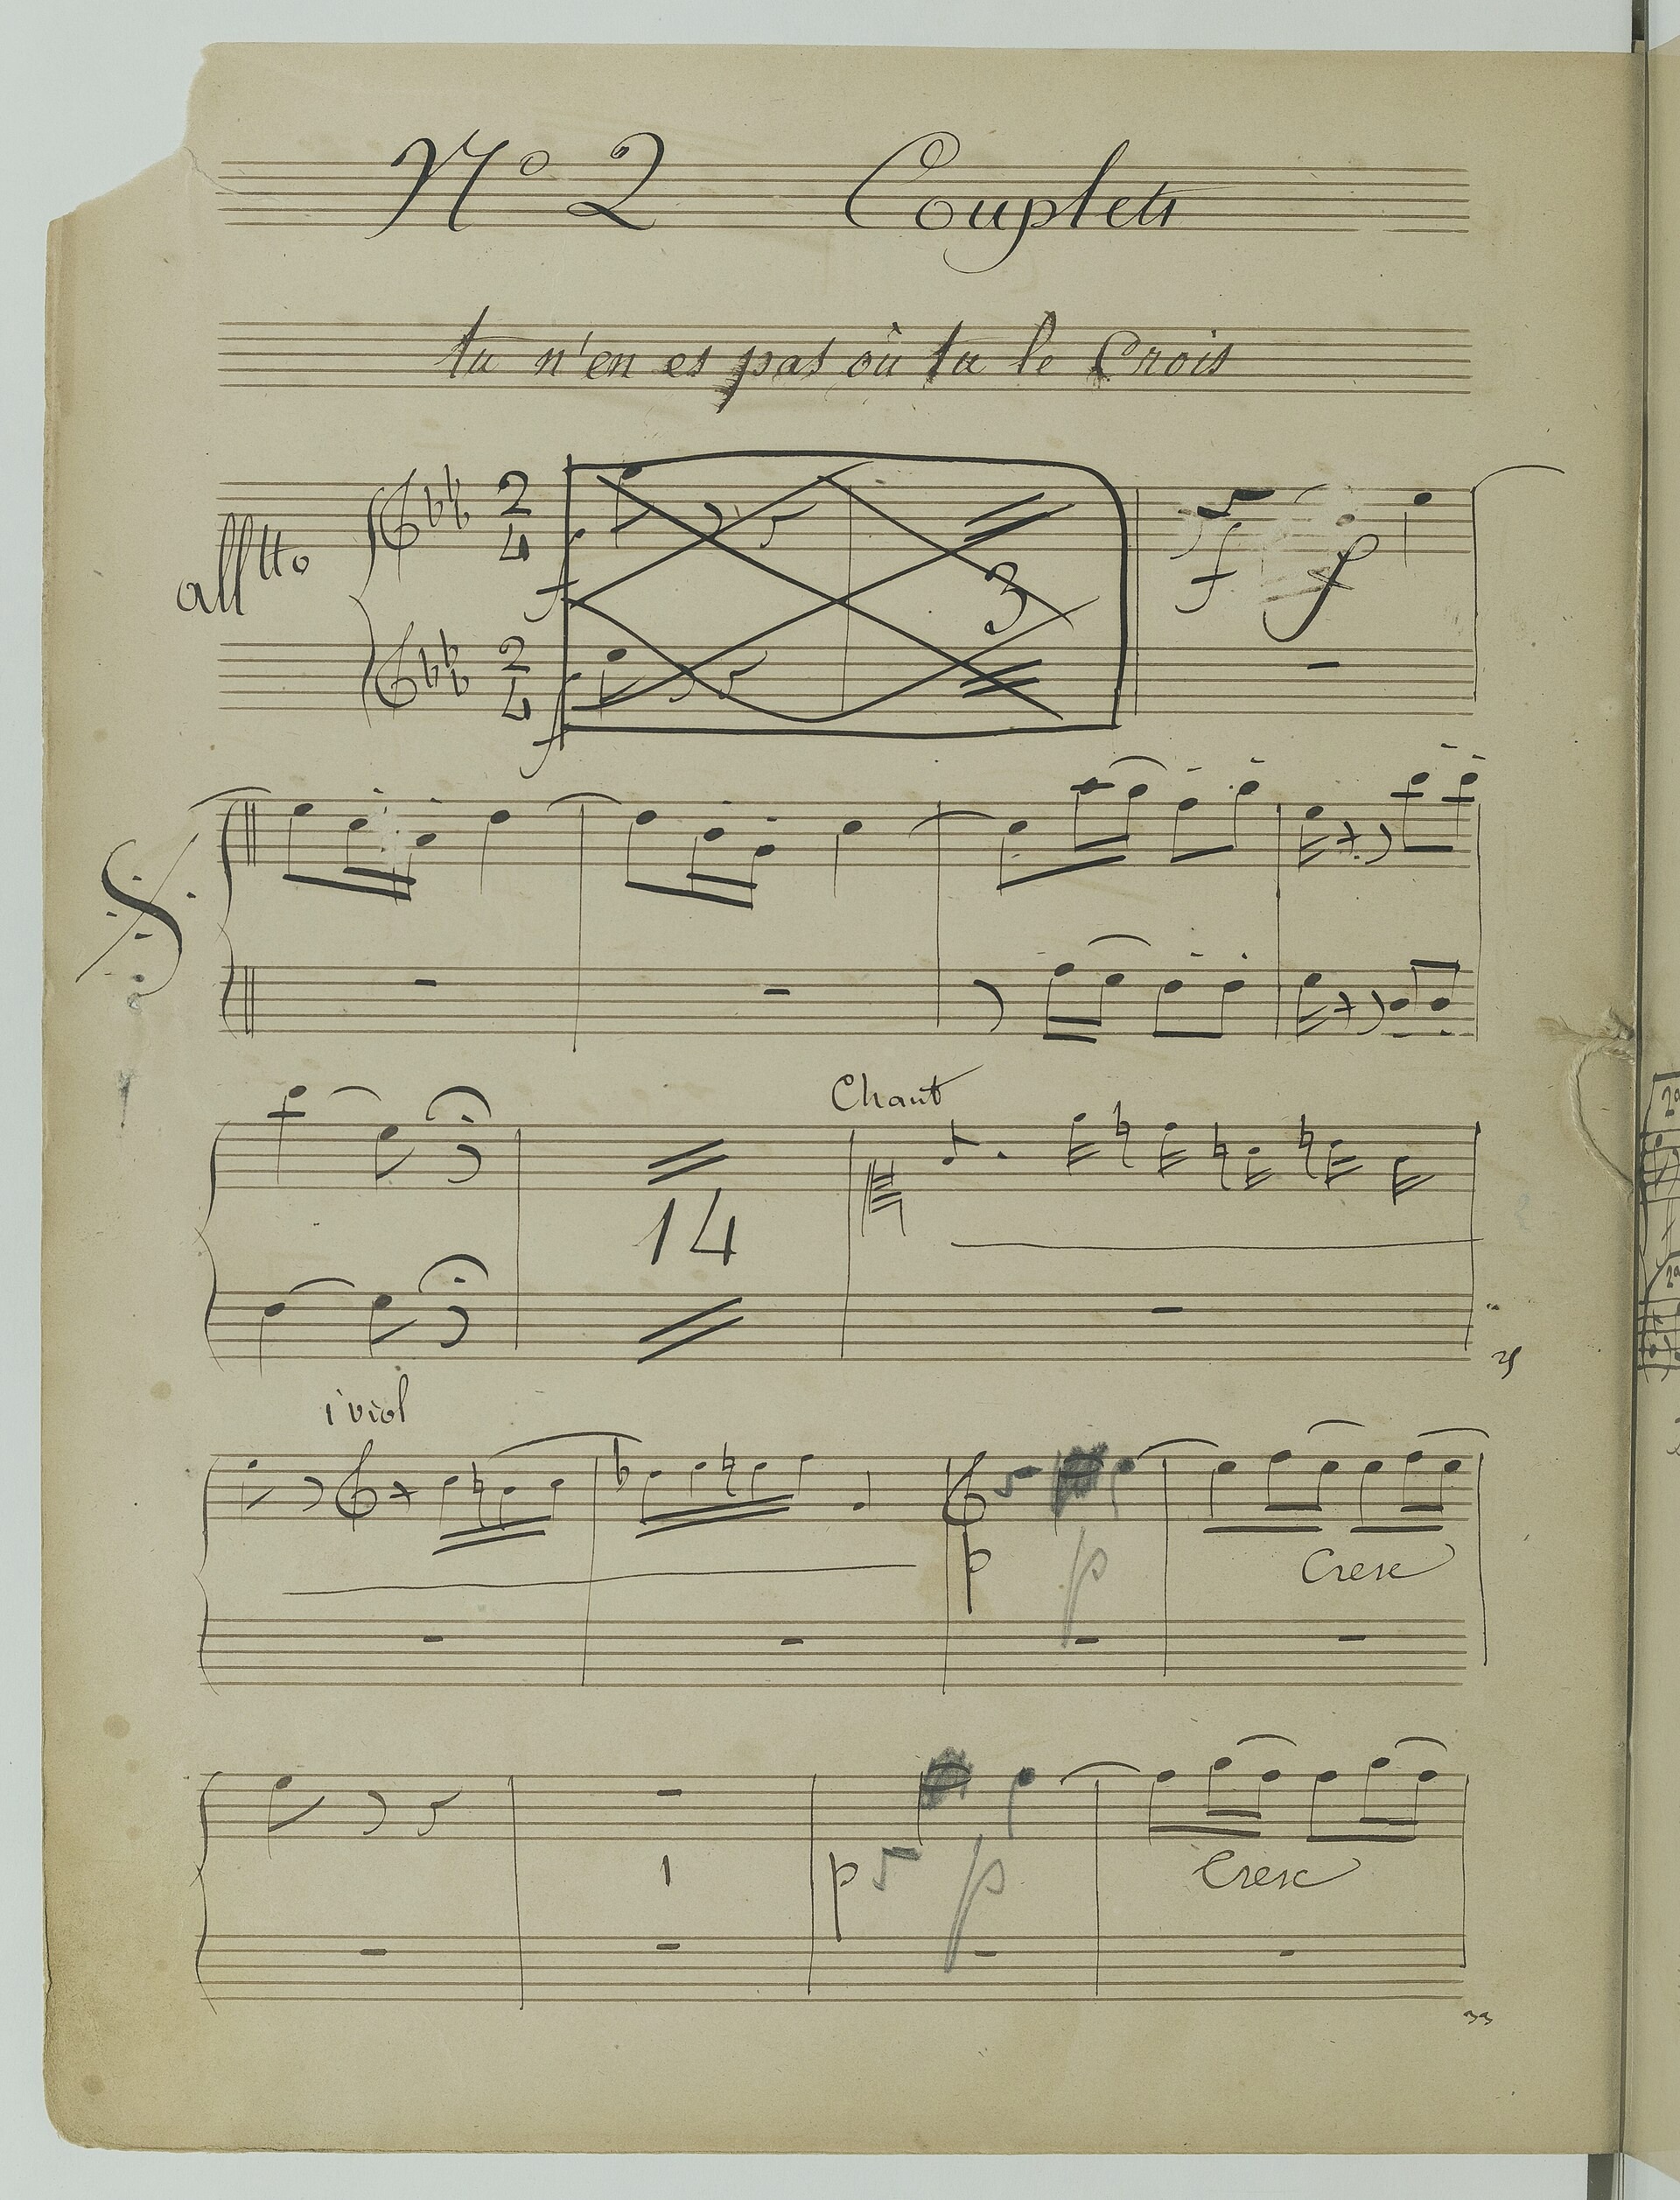 Nº 2 Couplets
tu n'en es pas où tu le Crois
all tto
2 4
f
3
f p
2 4
f
Chant
14
1 viol
p p Cresc
1 p p Cresc
33